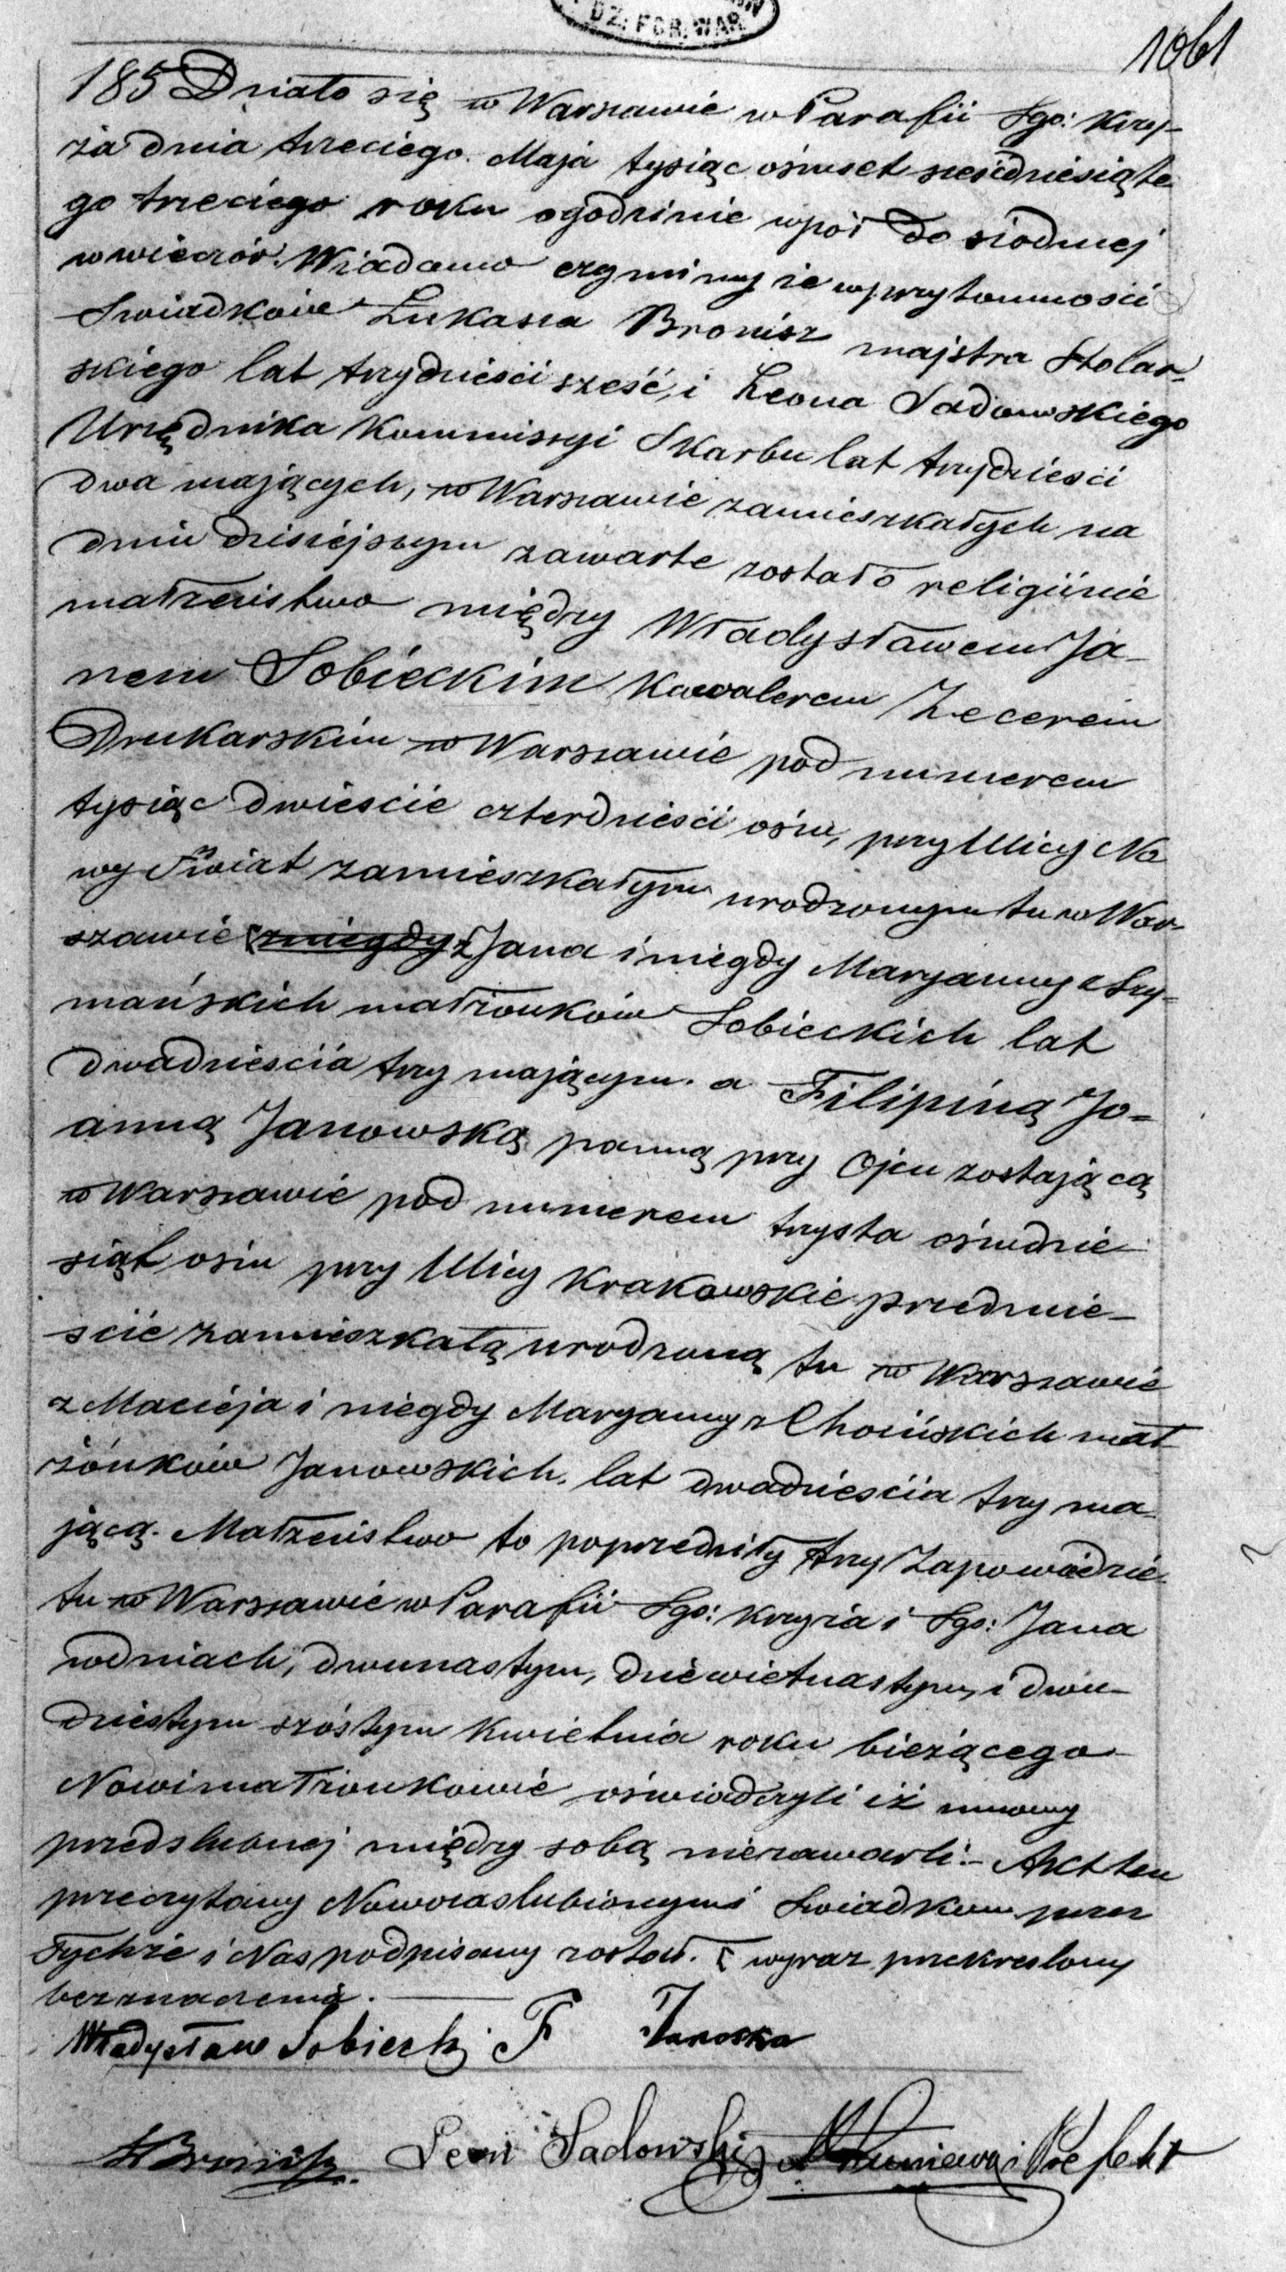 DZ: FOR. WAR.
1061
185 Działo się w Warszawie w Parafii Sgo: Krzy-
ża dnia trzeciego Maja tysiąc ośmset sześćdziesiąte
go trzeciego roku o godzinie wpół do siodmej
w wieczór. Wiadomo czynimy że w przytomności
Swiadków Łukasza Bronisz majstra Stolar-
skiego lat trzydzieści sześć, i Leona Sadowskiego
Urzędnika Kommissyi Skarbu lat trzydzieści
dwa mających, w Warszawie zamieszkałych na
dniu dzisiéjszym zawarte zostało religijnie
małżeństwo między Władysławem Ja-
nem Sobieckim Kawalerem Zecerem
Drukarskim w Warszawie pod numerem
tysiąc dwieście czterdzieści ośm, przy Ulicy No
wy Świat zamieszkałym urodzonym tu w War-
szawie z niegdy z Jana i niegdy Maryanny z Szy-
mańskich małżonków Sobieckich lat
dwadzieścia trzy mającym. a Filipiną Jo-
anną Janowską panną przy Ojcu zostającą
w Warszawie pod numerem trzysta ośmdzie-
siąt ośm przy Ulicy Krakowskie przedmie-
ście zamieszkałą urodzoną tu w Warszawie
z Macieja i niegdy Maryanny z Choińskich mał-
żónków Janowskich. lat dwadzieścia trzy ma-
jącą. Małżeństwo to poprzedziły trzy Zapowiedzie
tu w Warszawie w Parafii Sgo: Krzyża i Sgo: Jana
w dniach, dwunastym, dziewietnastym, i dwu-
dziestym szóstym Kwietnia roku bieżącego
Nowi małżonkowie oświadczyli iż umowy
przedslubnej między sobą niezawarli.- Akt ten
przeczytany Nowozaslubionym i Swiadkom przez
Tychże i Nas podpisany został. wyraz przekreslony
bez znaczenia.
Władysław Sobiecki F Janoska
Ł Bronisz. Leon Sadowski Prefekt